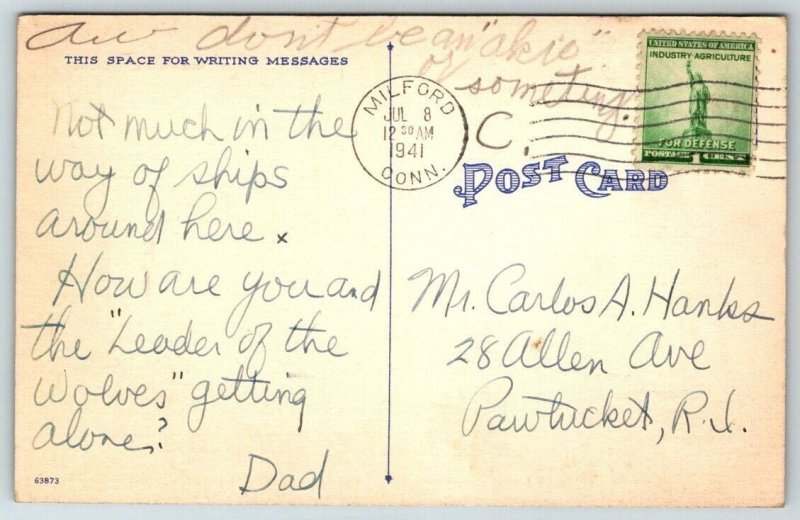 aw dont be an "akie"
or someting.
THIS SPACE FOR WRITING MESSAGES
Not much in the
way of ships
around here x
How are you and
the "Leader of the
Wolves" getting
alone?
Dad
63873
MILFORD
JUL 8
12 30 AM
1941
CONN.
C.
UNITED STATES OF AMERICA
INDUSTRY·AGRICULTURE
FOR DEFENSE
POSTAGE 1 CENT
POST CARD
Mr. Carlos A. Hanks
28 Allen Ave
Pawtucket, R.I.